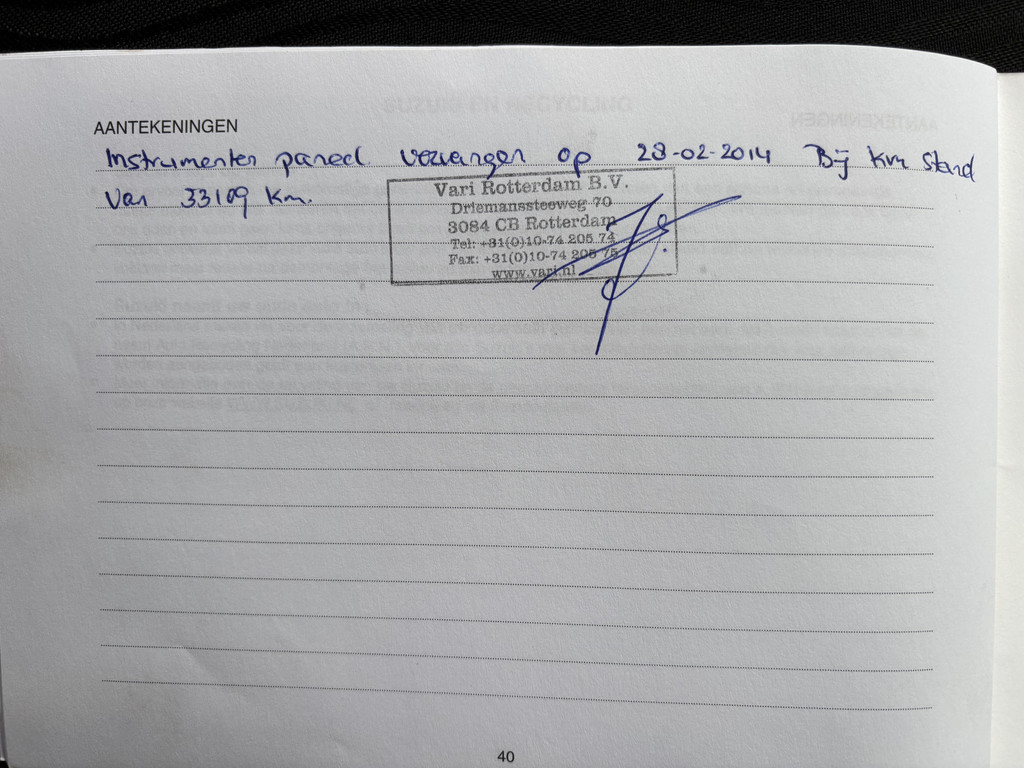 AANTEKENINGEN
Instrumenten paneel vervangen op 28-02-2014 Bij Km Stand
Van 33109 Km.
Vari Rotterdam B.V.
Driemanssteeweg 70
3084 CB Rotterdam
Tel: +31(0)10-74 205 74
Fax: +31(0)10-74 205 75
www.vari.nl
40